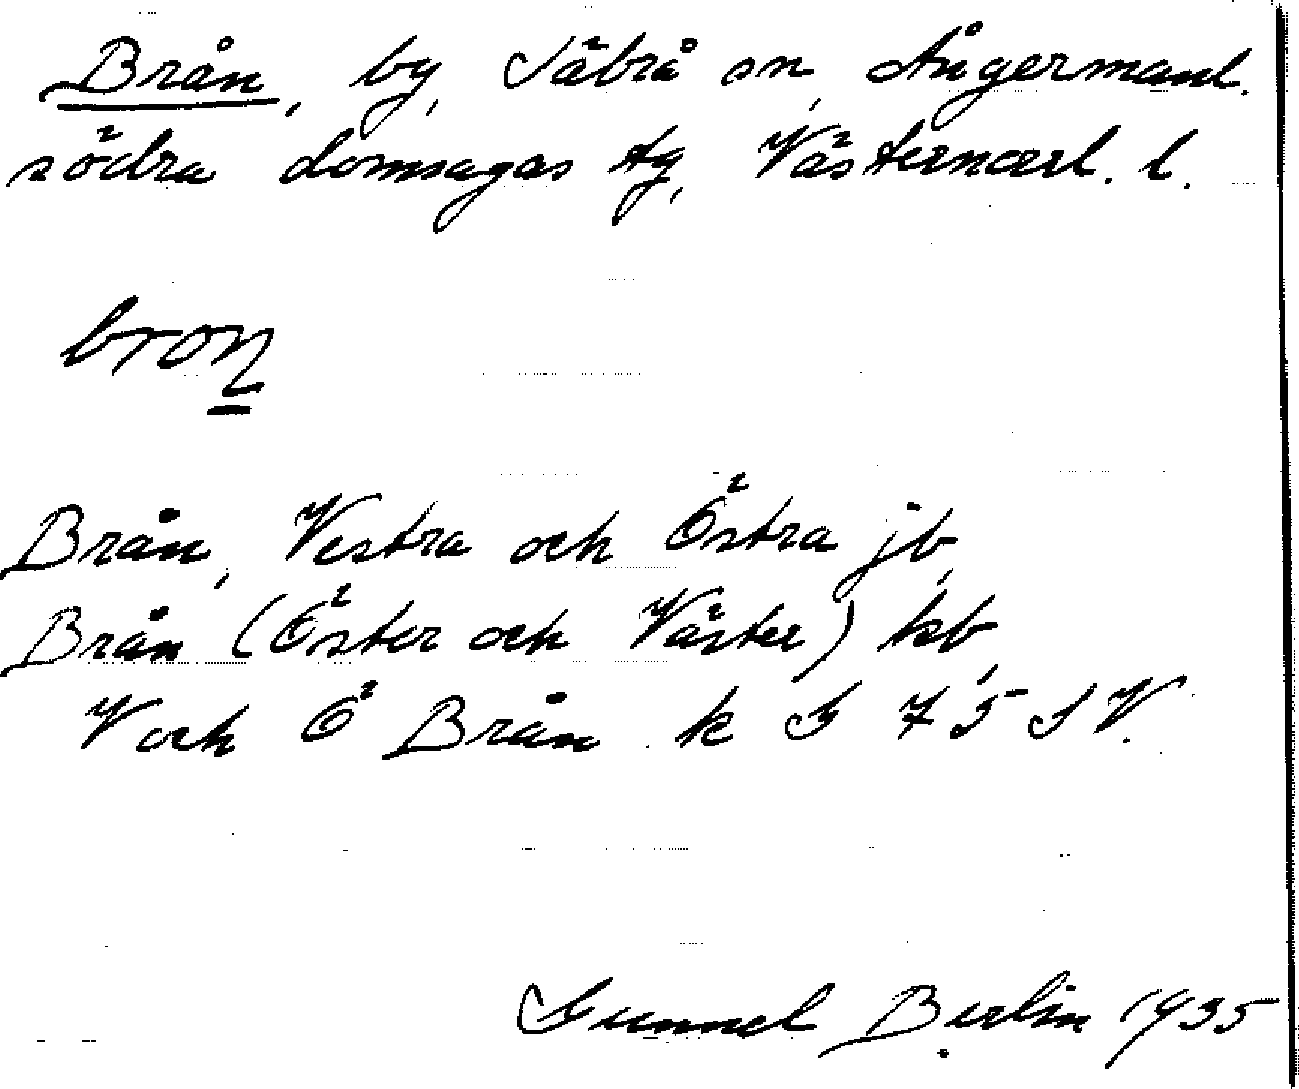 Brån, by, Säbrå sn, Ångermanl.
södra domsagas tg, Västernorrl. l.
bron
Brån, Vestra och Östra jb,
Brån (Öster och Väster) kb,
V och Ö Brån k G 75 S V.
Gunnel Berlin 1935